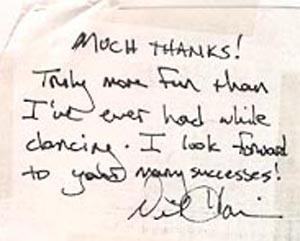 MUCH THANKS!
Truly more fun than
I've ever had while
dancing. I look forward
to your many successes!